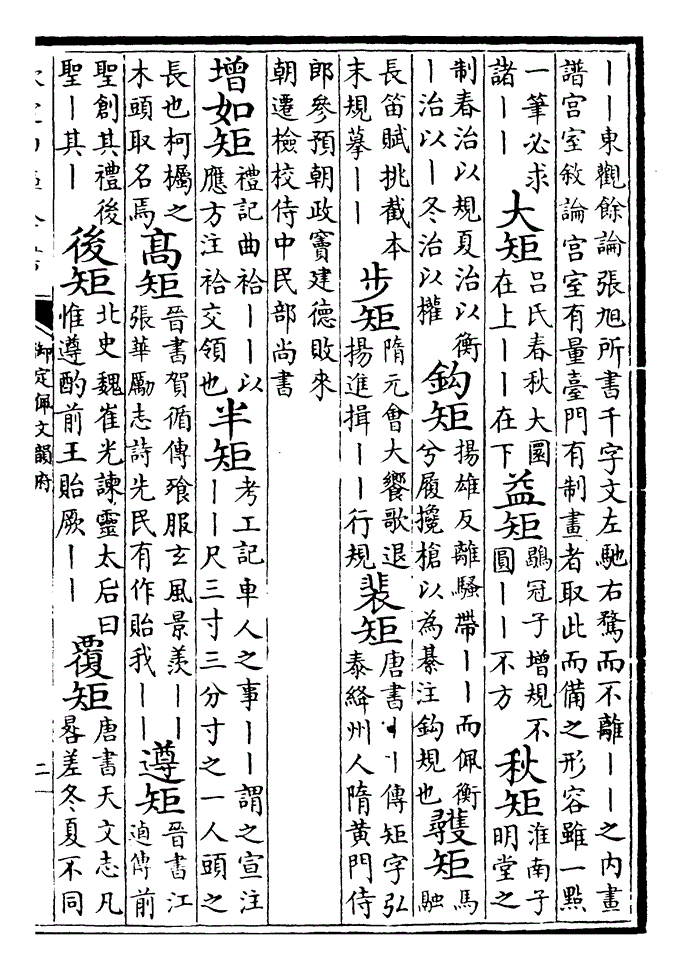 丨丨東觀餘論張旭所書千字文左馳右騖而不離丨丨之內畫
譜宫室敘論宫室有量臺門有制畫者取此而備之形容雖一點
一筆必求
諸丨丨
大矩
吕氏春秋大圜
在上丨丨在下
益矩
鶡冠子增規不
圓丨丨不方
秋矩
淮南子
明堂之
制春治以規夏治以衡
丨治以丨冬治以權
鈎矩
揚雄反離騷帶丨丨而佩衡
兮履欃槍以為綦注鈎規也
彠矩
馬
融
長笛賦挑截本
末規摹丨丨
步矩
隋元會大饗歌退
揚進揖丨丨行規
裴矩
唐書丨丨傳矩字弘
泰絳州人隋黄門侍
郎參預朝政竇建德敗來
朝遷檢校侍中民部尚書
增如矩
禮記曲袷丨丨以
應方注袷交領也
半矩
考工記車人之事丨丨謂之宣注
丨丨尺三寸三分寸之一人頭之
長也柯欘之
木頭取名焉
高矩
晉書賀循傳飡服玄風景羨丨丨
張華勵志詩先民有作貽我丨丨
遵矩
晉書江
逌傳前
聖創其禮後
聖丨其丨
後矩
北史魏崔光諫靈太后曰
惟遵酌前王貽厥丨丨
覆矩
唐書天文志凡
晷差冬夏不同
御定佩文韻府